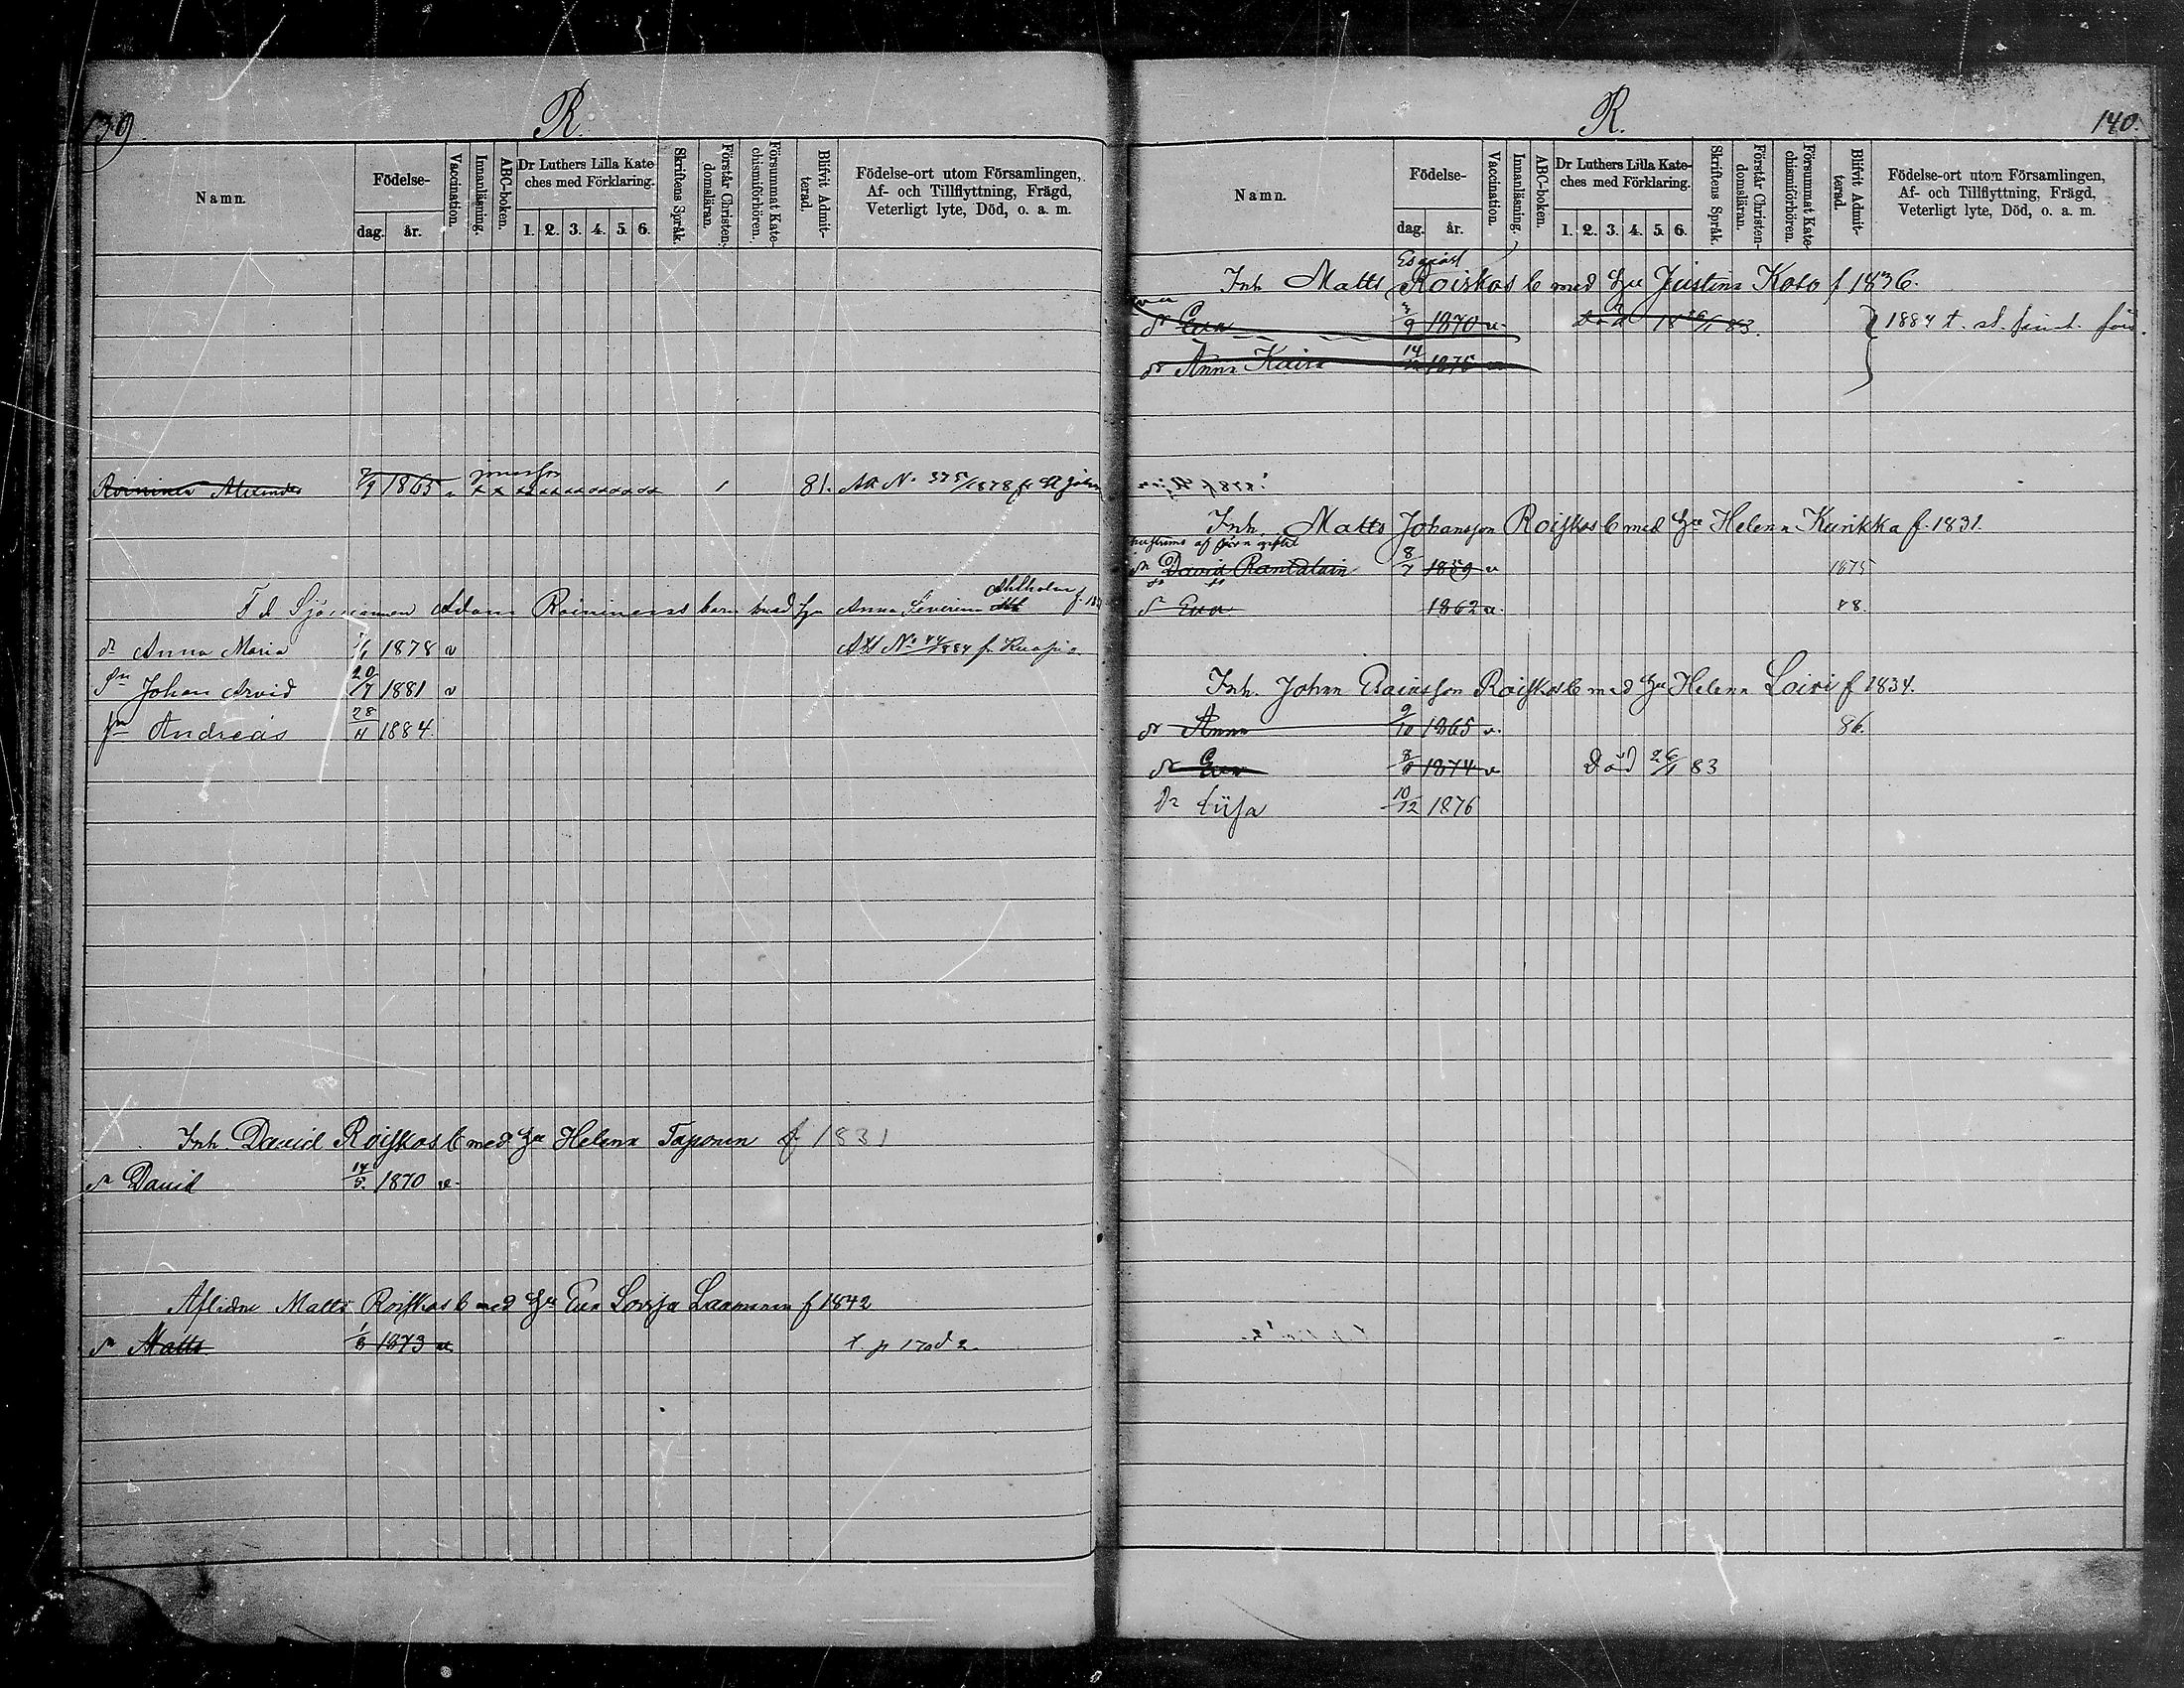 139.
R.
Namn.
Födelse-
dag. år.
Vaccination.
Innanläsning.
ABC-boken.
Dr Luthers Lilla Kate-
ches med Förklaring.
1. 2. 3. 4. 5. 6.
Skriftens Språk.
Förstår Christen-
domsläran.
Försummat Kate-
chismiförhören.
Blifvit Admit-
terad.
Födelse-ort utom Församlingen,
Af- och Tillflyttning, Frägd,
Veterligt lyte, Död, o. a. m.
Roininen Alexander 7/9 1865 81. Att No 375/1878 fr
F d Sjömannen Adam Roininens barn med hu Anna Severina Ahlholm f.
dr Anna Maria 1878 v Att No 44/1884 fr Kuopio
sn Johan Arvid 20/7 1881 v
sn Andreas 28/11 1884
Inh. David Roiskos b med hu Helena Taponen f. 1831
sn David 14/5 1870 v
Aflidne Matts Roiskos b med hu Eva Lovisa Laamanen f 1842
sn Matts 1/3 1873 v t. p 170 d 2.
R.
140.
Namn.
Födelse-
dag. år.
Vaccination.
Innanläsning.
ABC-boken.
Dr Luthers Lilla Kate-
ches med Förklaring.
1. 2. 3. 4. 5. 6.
Skriftens Språk.
Förstår Christen-
domsläran.
Försummat Kate-
chismiförhören.
Blifvit Admit-
terad.
Födelse-ort utom Församlingen,
Af- och Tillflyttning, Frägd,
Veterligt lyte, Död, o. a. m.
Inh Matts Roiskos b med hu Justina Koso f 1836.
dr Eva 3/9 1870 v. död 18 26/1 83. 1884 t. st. finsk. förs.
dr Anna Kaisa 14/12 1876 v
Inh. Matts Johansson Roiskos b med hu Helena Kurikka f. 1831.
hustruns af förra giftet
sn David Rantalain 8/7 1859 v 1875
dr Eva 1862 v. 78.
Inh. Johan Esaiasson Roiskos b med hu Helena Loiri f 1834.
dr Anna 9/10 1865 v. 86.
dr Eva 1874 v Död 26/1 83
dr Liisa 10/12 1876